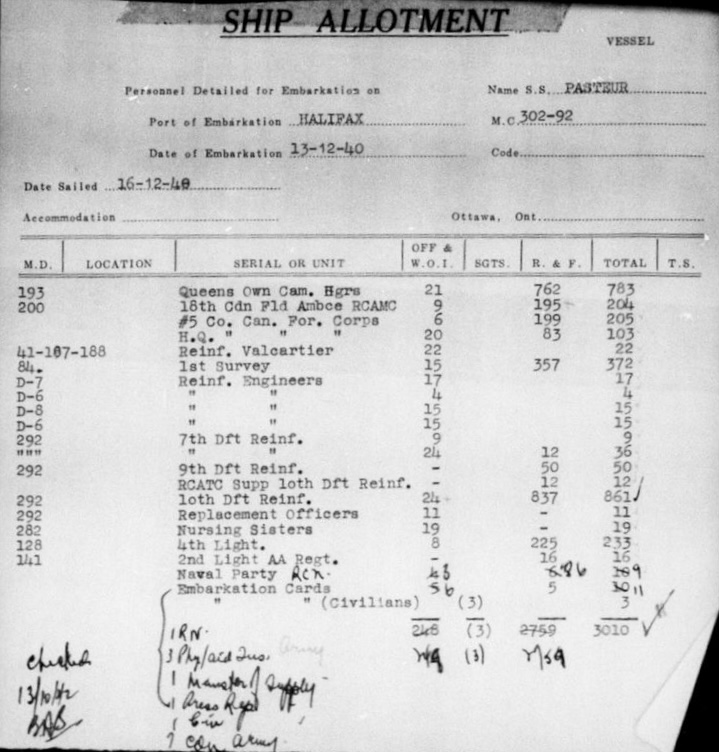 SHIP ALLOTMENT
VESSEL
Personnel Detailed for Embarkation on Name S.S. PASTEUR
Port of Embarkation HALIFAX M.C. 302-92
Date of Embarkation 13-12-40 Code
Date Sailed 16-12-40
Accommodation Ottawa, Ont.
M.D. LOCATION SERIAL OR UNIT OFF & W.O.I. SGTS. R. & F. TOTAL T.S.
193 Queens Own Cam. Hgrs 21 762 783
200 18th Cdn Fld Ambce RCAMC 9 195 204
#5 Co. Can. For. Corps 6 199 205
H.Q. " " " 20 83 103
41-187-188 Reinf. Valcartier 22 22
84. 1st Survey 15 357 372
D-7 Reinf. Engineers 17 17
D-6 " " 4 4
D-8 " " 15 15
D-6 " " 15 15
292 7th Dft Reinf. 9 9
""" " " 24 12 36
292 9th Dft Reinf. - 50 50
RCATC Supp 1oth Dft Reinf. - 12 12
292 1oth Dft Reinf. 24 837 861
292 Replacement Officers 11 - 11
282 Nursing Sisters 19 - 19
128 4th Light. 8 225 233
141 2nd Light AA Regt. - 16 16
Naval Party RCN. 3 86 9
Embarkation Cards 6 5 11
" " (Civilians) (3) 3
1 RN. 248 (3) 2759 3010
3 Army
checked (3)
1 of Supply
13/10/42 1 Press
1
Cdn Army